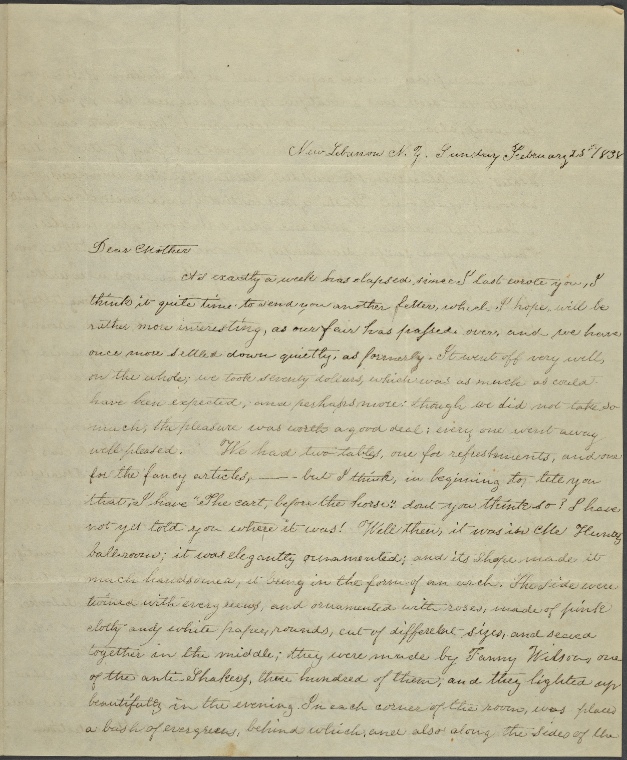 New Lebanon N. Y. Sunday February 25th 1838
Dear Mother
As exactly a week has elapsed, since I last wrote you, I
think it quite time to send you another letter, which I hope, will be
rather more interesting, as our fair has passed over, and we have
once more settled down quietly, as formerly. It went off very well,
on the whole; we took seventy dollars, which was as much as could
have been expected, and perhaps more: though we did not take so
much, the pleasure was worth a good deal; every one went away
well pleased. We had two tables, one for refreshments, and one
for the fancy articles, — but I think, in beginning to tell you
that, I have "The cart, before the horse" dont you think so? I have
not yet told you where it was! Well then, it was in Mr
ballroom; it was elegantly ornamented; and its shape made it
much handsomer, it being in the form of an arch. The side were
twined with evergreens, and ornamented with roses, made of pink
cloth and white paper, rounds, cut of different sizes, and sewed
together in the middle; they were made by Fanny Wilson, one
of the anti-Shakers, three hundred of them; and they lighted up
beautifully in the evening In each corner of the room, was placed
a bush of evergreen, behind which, and also along the sides of the